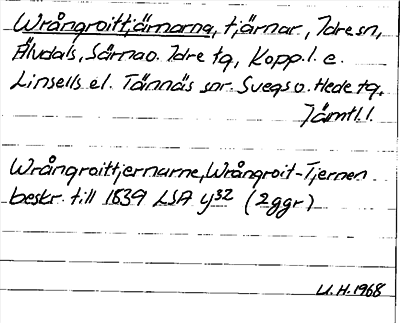 Wrångroittjärnarna, tjärnar, Idresn,
Älvdals, Särna o. Idre tg, Kopp.l. e.
Linsells el. Tännäs snr. Svegs o. Hede tg.
Jämtl.l.
Wrångroittjernarne, Wrångroit-Tjernen
beskr. till 1839 LSA y32 (2ggr)
U.H. 1968